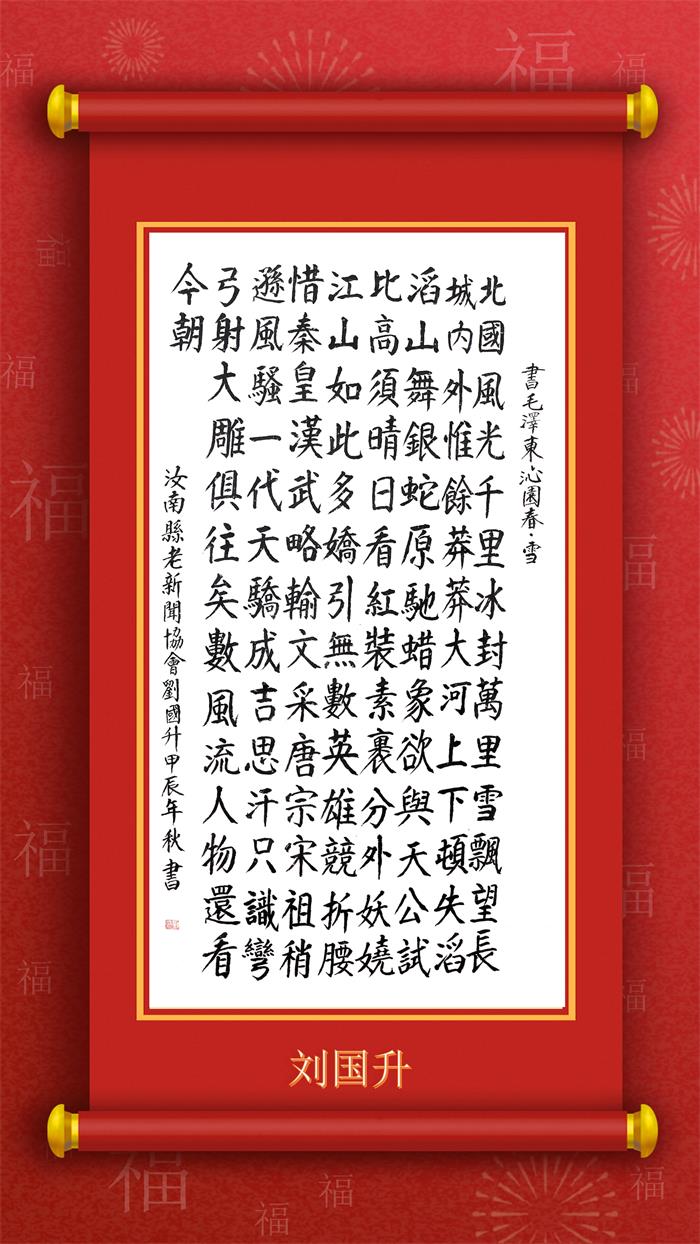 書毛澤東沁園春·雪
北國風光千里冰封萬里雪飄望長
城内外惟餘莽莽大河上下頓失滔
滔山舞銀蛇原馳蜡象欲與天公試
比高須晴日看紅裝素裹分外妖嬈
江山如此多嬌引無數英雄競折腰
惜秦皇漢武略輸文采唐宗宋祖稍
遜風騷一代天驕成吉思汗只識彎
弓射大雕俱往矣數風流人物還看
今朝
汝南縣老新聞協會劉國升甲辰年秋書
刘国升